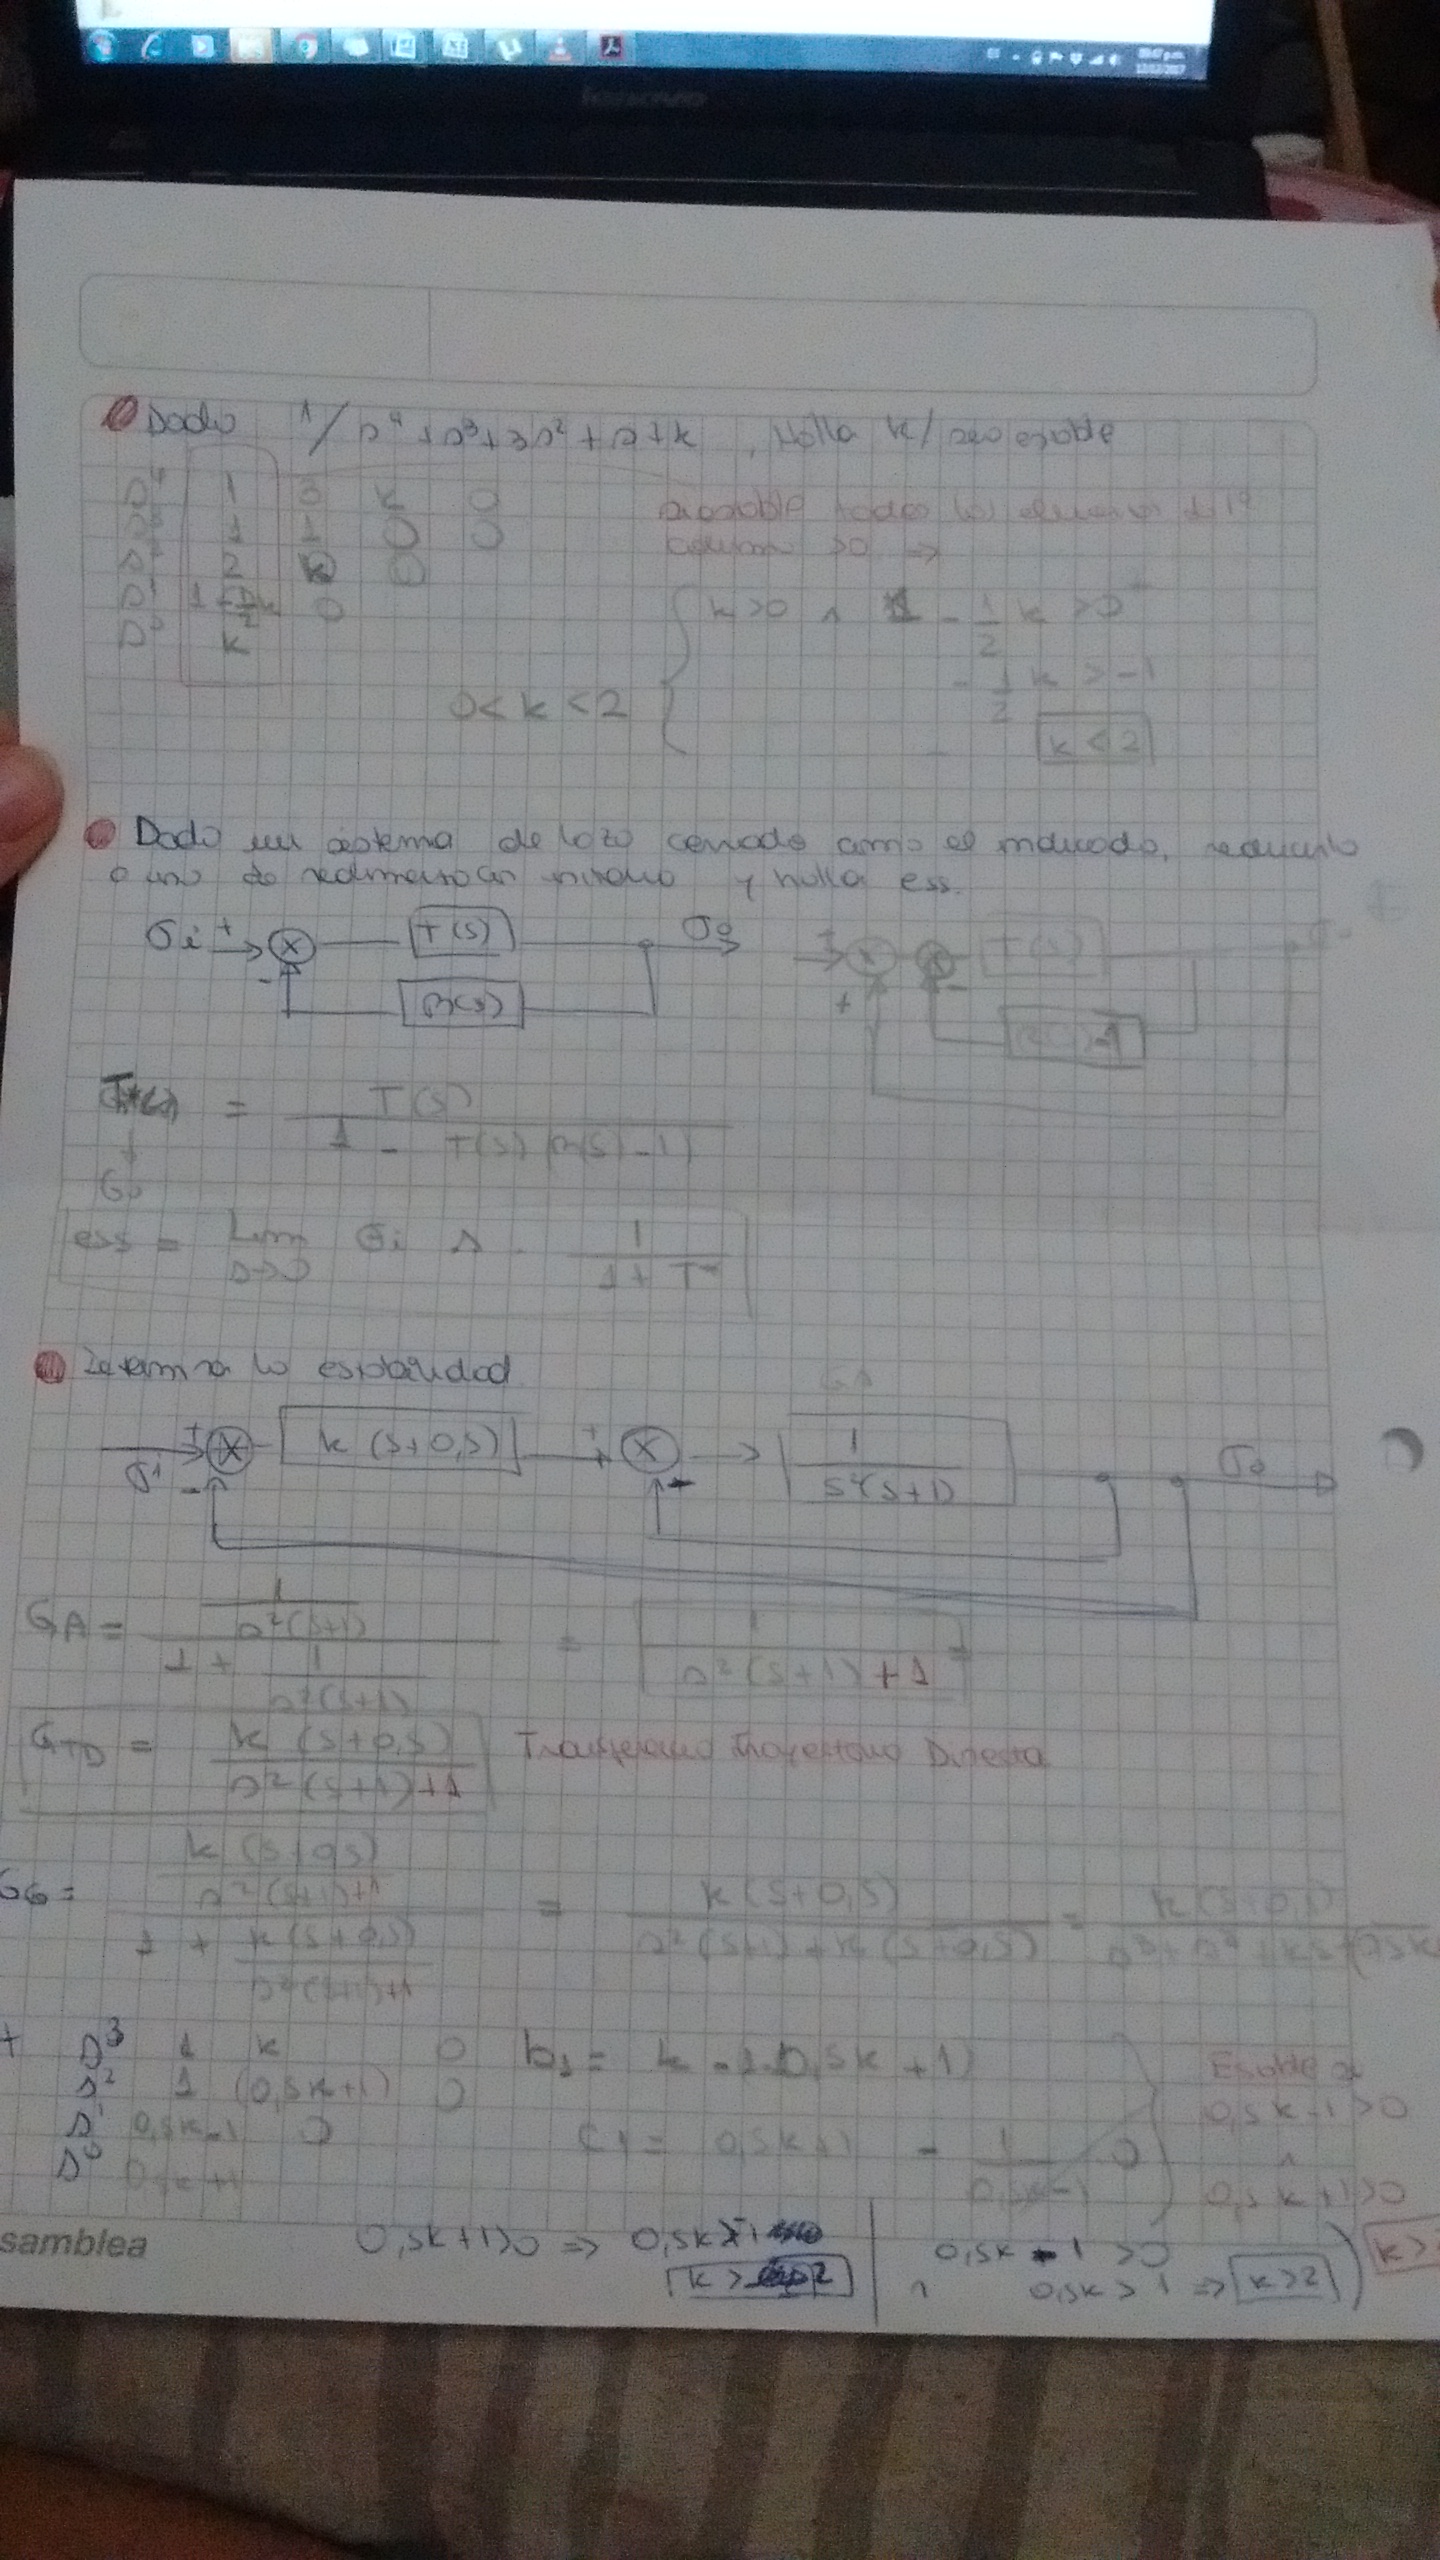 lenovo
Dado 1/s⁴+s³+3s²+s+k , Halla k/ sea estable
s⁴ 1 3 k 0
s³ 1 1 0 0
s² 2 k 0
s¹ 1-½k 0
s⁰ k
Es estable todos los elementos 1ª
columna >0 ⇒
k>0 ∧ 1 - 1/2 k >0
- 1/2 k > -1
0< k <2
k < 2
Dado un sistema de lazo cerrado como el indicado, reducirlo
a uno de realimentación unitaria y halla ess.
σi + - T(s) σo
β(s)
+ + - T(s)
T*(s) = T(s) / 1 - T(s) (β(s) - 1)
Go
ess = Lim s→0 σi s . 1 / 1 + T*
Determina la estabilidad
σi + - k (s+0,5) + - 1 / s²(s+1) σo
GA = 1/s²(s+1) / 1 + 1/s²(s+1) = 1 / s²(s+1) +1
GTD = k (s+0,5) / s²(s+1) +1 Transferencia Trayectoria Directa
GG = k (s+0,5)/s²(s+1)+1 / 1 + k(s+0,5)/s²(s+1)+1 = k(s+0,5) / s²(s+1)+k(s+0,5) = k(s+0,5) / s³+s²+ks+(0,5k
+ s³ 1 k 0 b1 = k - 1.(0,5k +1)
s² 1 (0,5k+1) 0
s¹ 0,5k-1 0 c1 = 0,5k+1 - 1/0,5k-1 0
s⁰ 0,5k+1
Estable si
0,5k-1 >0
∧
0,5k+1>0
samblea
0,5k+1>0 ⇒ 0,5k>-1
k > 2
0,5k - 1 >0
∧ 0,5k > 1 ⇒ k>2
k>